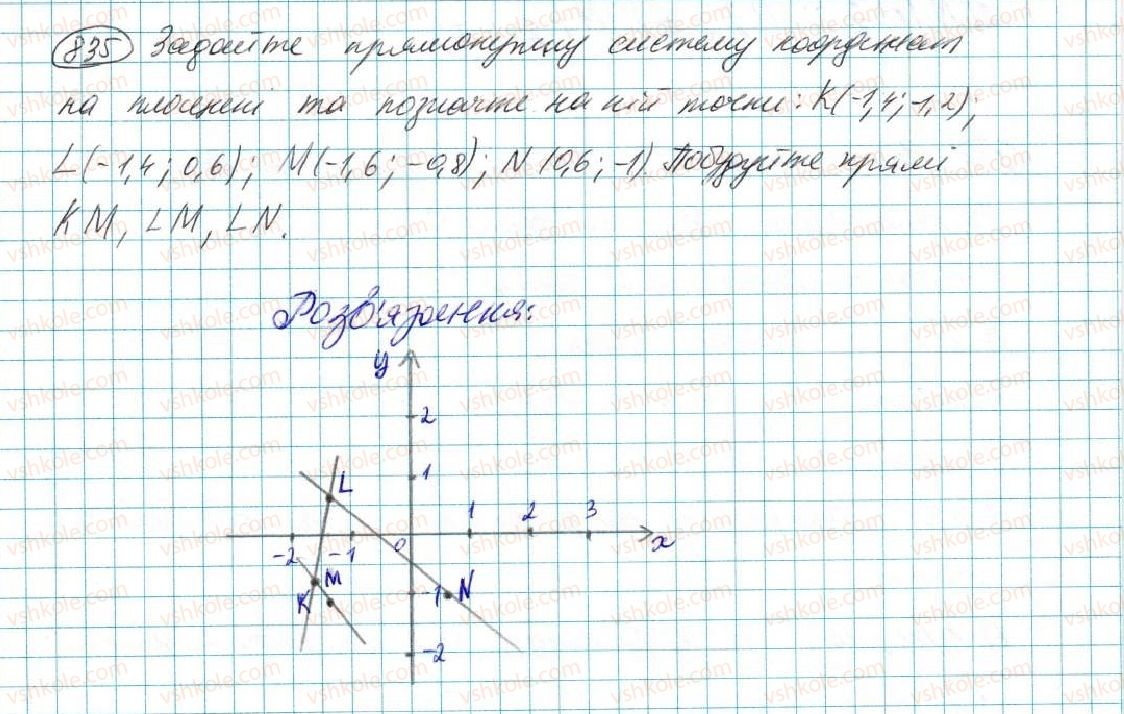 835 Задайте прямокутну систему координат
на площині та позначте на ній точки: K(-1,4; -1,2);
L(-1,4; 0,6); M(-1,6; -0,8); N(0,6; -1). Побудуйте прямі
KM, LM, LN.
Розв'язання:
y
2
L
1
1 2 3
-2 -1 0 x
M
K -1 N
-2
vshkole.com